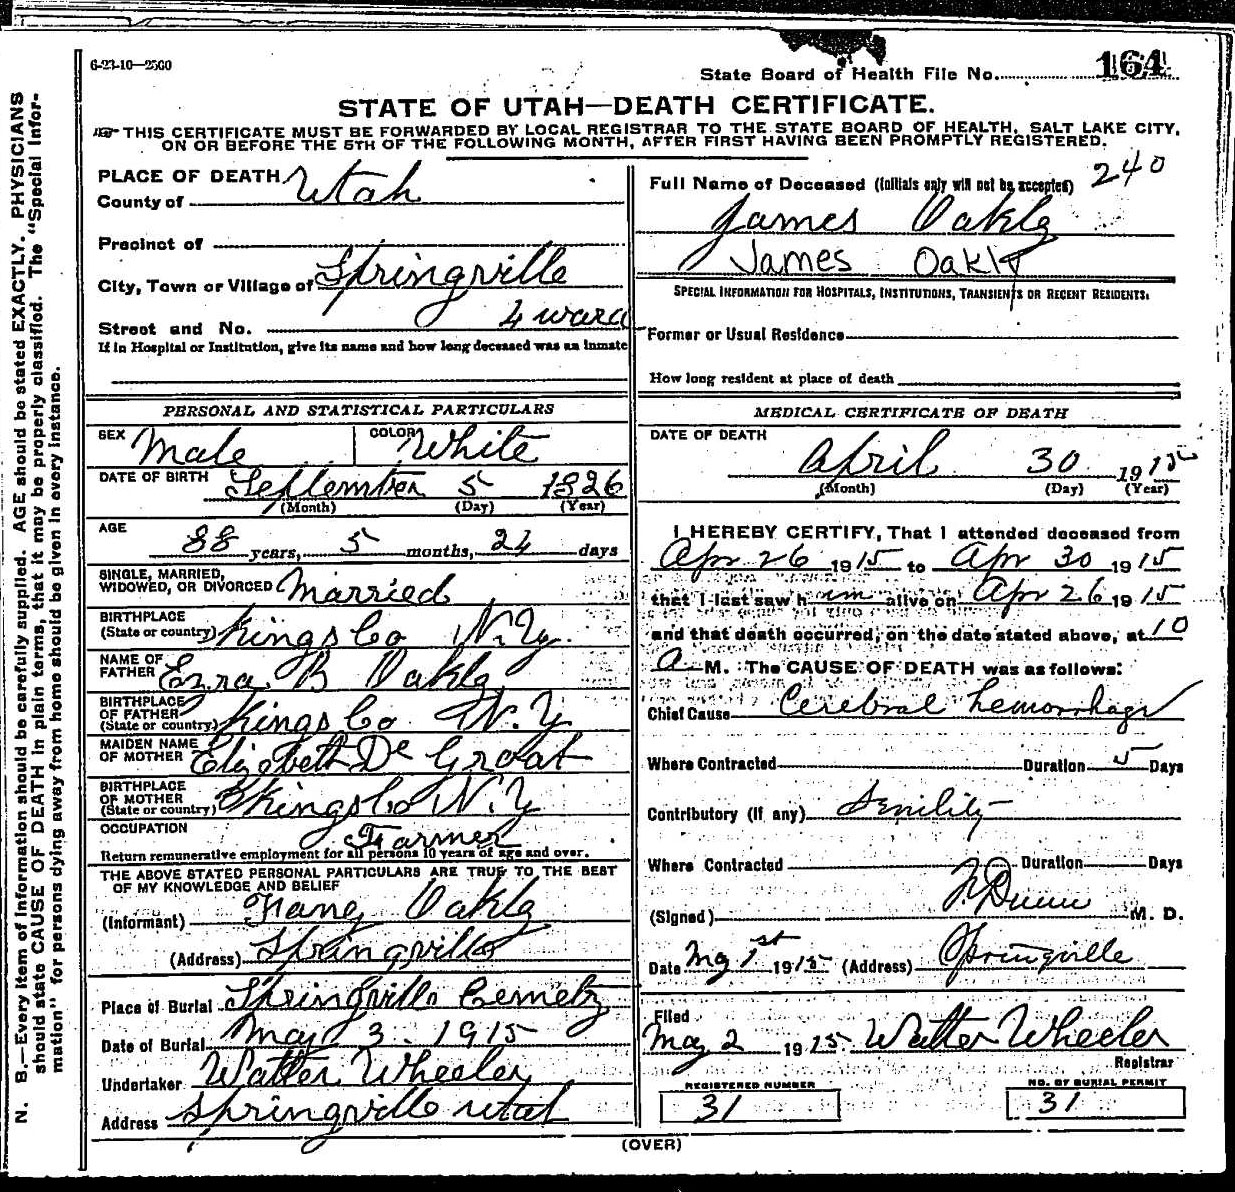 6-23-10—2500
State Board of Health File No. 164
STATE OF UTAH—DEATH CERTIFICATE.
THIS CERTIFICATE MUST BE FORWARDED BY LOCAL REGISTRAR TO THE STATE BOARD OF HEALTH, SALT LAKE CITY,
ON OR BEFORE THE 5TH OF THE FOLLOWING MONTH, AFTER FIRST HAVING BEEN PROMPTLY REGISTERED.
N. B.—Every item of information should be carefully supplied. AGE should be stated EXACTLY. PHYSICIANS
should state CAUSE OF DEATH in plain terms, that it may be properly classified. The "Special Infor-
mation" for persons dying away from home should be given in every instance.
PLACE OF DEATH
County of Utah
Precinct of
City, Town or Village of Springville
Street and No. 4 ward
If in Hospital or Institution, give its name and how long deceased was an inmate
PERSONAL AND STATISTICAL PARTICULARS
SEX Male COLOR White
DATE OF BIRTH September 5 1826
(Month) (Day) (Year)
AGE 88 years, 5 months, 24 days
SINGLE, MARRIED,
WIDOWED, OR DIVORCED Married
BIRTHPLACE
(State or country) Kings Co N.Y.
NAME OF
FATHER Ezra B Oakly
BIRTHPLACE
OF FATHER
(State or country) Kings Co N.Y
MAIDEN NAME
OF MOTHER Elizabeth De Groat
BIRTHPLACE
OF MOTHER
(State or country) Kings Co N.Y
OCCUPATION Farmer
Return remunerative employment for all persons 10 years of age and over.
THE ABOVE STATED PERSONAL PARTICULARS ARE TRUE TO THE BEST
OF MY KNOWLEDGE AND BELIEF
(Informant) Oakly
(Address) Springville
Place of Burial Springville
Date of Burial May 3 1915
Undertaker Walter Wheeler
Address Springville Utah
240
Full Name of Deceased (Initials only will not be accepted)
James Oakly
James Oakly
SPECIAL INFORMATION FOR HOSPITALS, INSTITUTIONS, TRANSIENTS OR RECENT RESIDENTS.
Former or Usual Residence
How long resident at place of death
MEDICAL CERTIFICATE OF DEATH
DATE OF DEATH
April 30 1915
(Month) (Day) (Year)
I HEREBY CERTIFY, That I attended deceased from
Apr 26 1915 to Apr 30 1915
that I last saw him alive on Apr 26 1915
and that death occurred, on the date stated above, at 10
a M. The CAUSE OF DEATH was as follows:
Chief Cause Cerebral hemorrhage
Where Contracted Duration 5 Days
Contributory (if any) Senility
Where Contracted Duration Days
(Signed) Dunn M. D.
Date May 1st 1915 (Address) Springville
Filed
May 2 1915. Walter Wheeler
Registrar
REGISTERED NUMBER
31
NO. OF BURIAL PERMIT
31
(OVER)